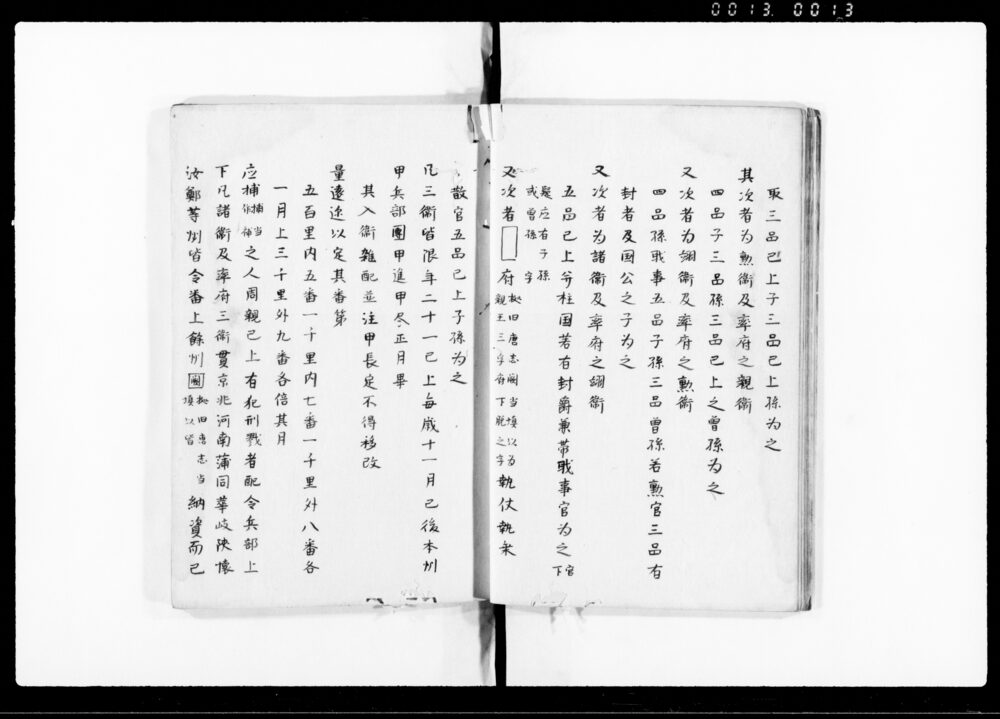 0013 0013
取三品已上子三品已上孫為之
其次者為勲衛及率府之親衛
四品子三品孫三品已上之曽孫為之
又次者為翊衛及率府之勲衛
四品孫職事五品子孫三品曽孫若勲官三品有
封者及国公之子為之
又次者為諸衛及率府之翊衛
五品已上并柱国若有封爵兼帯職事官為之官下
疑应有子孫
或曽孫字
又次者 府拠旧唐志闕当填以为
親王三字府下脱之字執仗執乗
散官五品已上子孫為之
凡三衛皆限年二十一已上毎歳十一月已後本州
申兵部團甲進甲尽正月畢
其入衛雑配並注甲長定不得移改
量遠迩以定其番第
五百里内五番一千里内七番一千里外八番各
一月上三千里外九番各倍其月
应捕捕当作補之人周親已上有犯刑戮者配令兵部上
下凡諸衛及率府三衛貫京兆河南蒲同華岐陝懐
汝鄭等州皆令番上餘州圏拠旧唐志当
填以皆納資而已